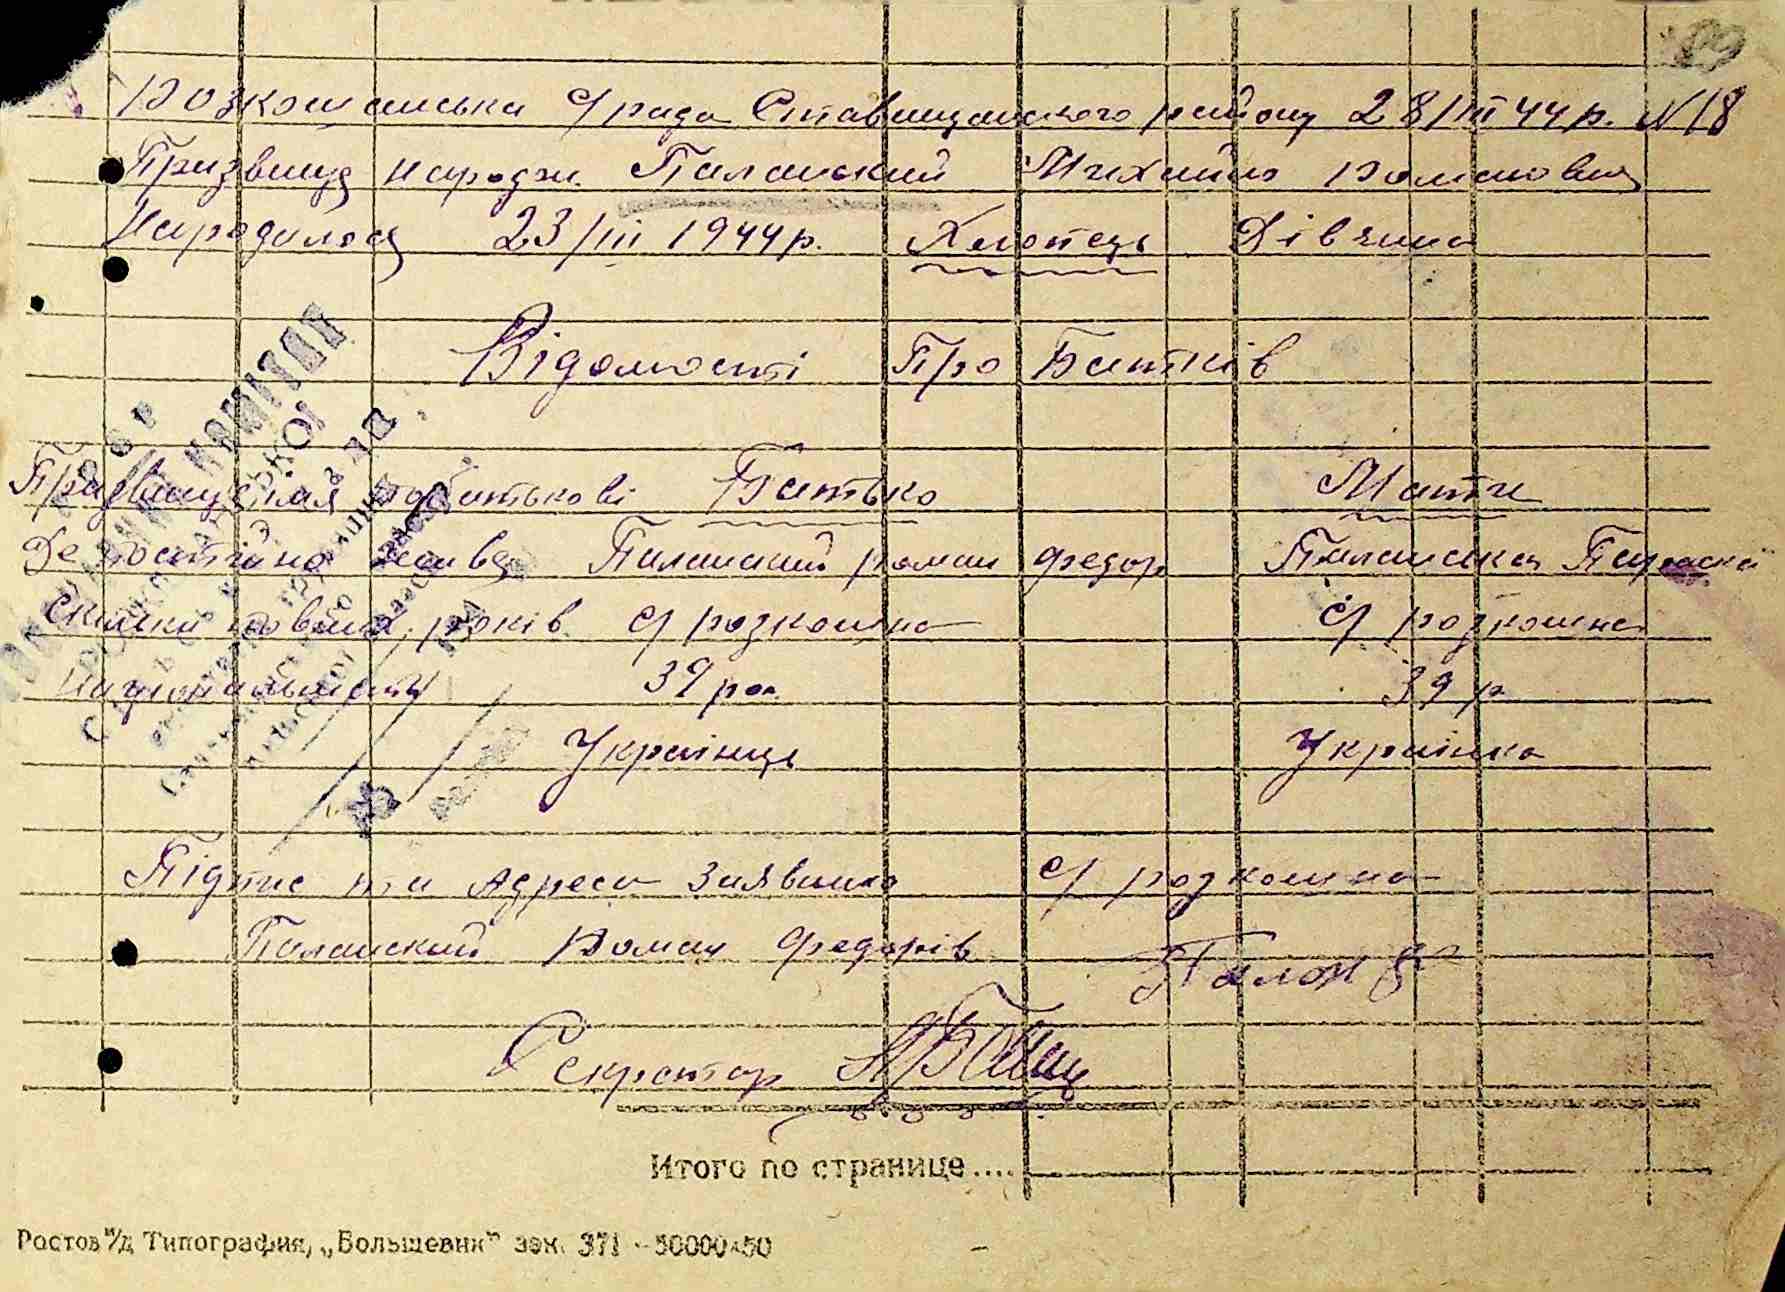 Розкошанська с/рада Ставищанського району 28/III 44 р. N 18
Призвище народж. Паланский Михайло Романович
Народилося 23/III 1944 р. Хлопець Дівчина
Відомості Про Батьків
Призвище імя побатькові Батько Мати
Де постійно живе Паланский роман федор Паланська Параска
скільки повних років с/ розкошна с/ розкошна
Національність 39 ро. 39 р
Українець Українка
Підпис та Адреса заявника с/ розкошна
Паланский Роман Федорів Палан
Секретар
Итого по странице....
Ростов н/Д Типография, „Большевик" зак. 371 - 50000×50